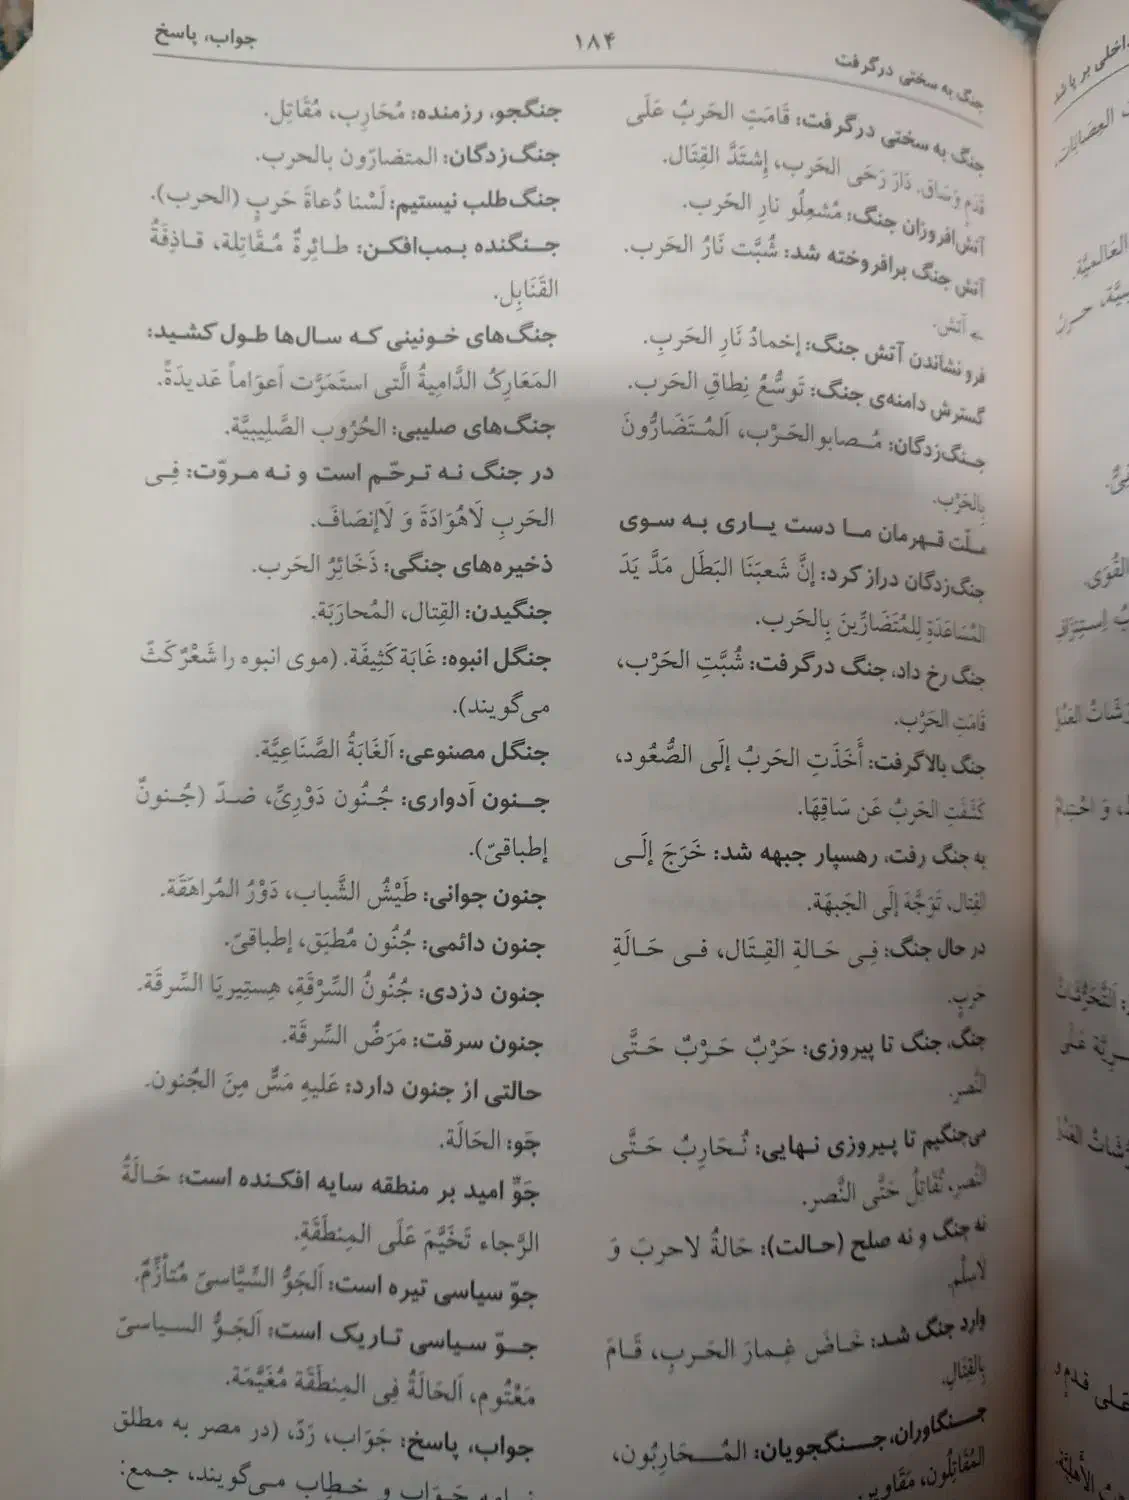 جنگ به سختی درگرفت
۱۸۴
جواب، پاسخ
جنگ به سختی درگرفت: قَامَتِ الحَربُ عَلَی
قَدَمٍ وَسَاق. دَارَ رَحَی الحَرب، إِشتَدَّ القِتَال.
آتش‌افروزان جنگ: مُشعِلُو نارِ الحَرب.
آتش جنگ برافروخته شد: شُبَّت نَارُ الحَرب.
← آتش.
فرو نشاندن آتش جنگ: إخمادُ نَارِ الحَربِ.
گسترش دامنه‌ی جنگ: تَوسُّعُ نِطاقِ الحَرب.
جنگ‌زدگان: مُصابو الحَرْب، اَلمُتَضَارُّونَ
بِالحَرْب.
ملّت قهرمان ما دست یاری به سوی
جنگ‌زدگان دراز کرد: إنَّ شَعبَنَا البَطَل مَدَّ یَدَ
المُسَاعَدَةِ لِلمُتَضَارِّینَ بِالحَرب.
جنگ رخ داد، جنگ درگرفت: شُبَّتِ الحَرْب،
قَامَتِ الحَرْب.
جنگ بالاگرفت: أَخَذَتِ الحَربُ إلَی الصُّعُود،
کَشَفَتِ الحَربُ عَن سَاقِهَا.
به جنگ رفت، رهسپار جبهه شد: خَرَجَ إلَی
القِتال، تَوَجَّهَ إلَی الجَبهَة.
در حال جنگ: فِی حَالةِ القِتَال، فی حَالَةِ
حَربٍ.
جنگ، جنگ تا پیروزی: حَرْبٌ حَرْبٌ حَتَّی
النَّصر.
می‌جنگیم تا پیروزی نهایی: نُحَارِبُ حَتَّی
النَّصرِ، نُقَاتِلُ حَتَّی النَّصر.
نه جنگ و نه صلح (حالت): حَالةُ لا حربَ وَ
لاسِلْم.
وارد جنگ شد: خَاضَ غِمارَ الحَربِ، قَامَ
بِالقِتَالِ.
جنگاوران، جنگجویان: المُحَارِبُون،
المُقَاتِلُون، مَقَاویر.
جنگجو، رزمنده: مُحَارِب، مُقَاتِل.
جنگ‌زدگان: المتضارّون بالحرب.
جنگ‌طلب نیستیم: لَسْنا دُعاةَ حَربٍ (الحرب).
جنگنده بمب‌افکن: طَائِرةٌ مُقَاتِلة، قَاذِفَةُ
القَنَابِل.
جنگ‌های خونینی که سال‌ها طول کشید:
المَعَارِكُ الدَّامِیةُ الَّتی استَمَرَّت اَعوَاماً عَدیدَةً.
جنگ‌های صلیبی: الحُرُوب الصَّلِیبیَّة.
در جنگ نه ترحّم است و نه مروّت: فِی
الحَربِ لَاهُوَادَةَ وَ لَاإنصَافَ.
ذخیره‌های جنگی: ذَخَائِرُ الحَرب.
جنگیدن: القِتال، المُحارَبَة.
جنگل انبوه: غَابَة کَثِیفَة. (موی انبوه را شَعْرٌ کَثّ
می‌گویند).
جنگل مصنوعی: اَلغَابَةُ الصَّنَاعِیَّة.
جنون اَدواری: جُنُون دَوْرِیّ، ضدّ (جُنونٌ
إطباقیّ).
جنون جوانی: طَیْشُ الشَّباب، دَوْرُ المُراهَقَة.
جنون دائمی: جُنُون مُطبَق، إطباقیّ.
جنون دزدی: جُنُونُ السِّرْقَةِ، هِستِیریَا السِّرقَة.
جنون سرقت: مَرَضُ السِّرقَة.
حالتی از جنون دارد: عَلَیهِ مَسٌّ مِنَ الجُنون.
جَو: الحَالَة.
جَوِّ امید بر منطقه سایه افکنده است: حَالَةُ
الرَّجاء تَخَیَّمَ عَلَی المِنطَقَةِ.
جوّ سیاسی تیره است: اَلجَوُّ السِّیَاسیّ مُتأَزِّمٌ.
جوّ سیاسی تاریک است: اَلجَوُّ السیاسیّ
مَعْتُوم، اَلحَالَةُ فِی المِنطَقَة مُغَیَّمَة.
جواب، پاسخ: جَوَاب، رَدّ، (در مصر به مطلق
نامه جَوَاب و خطاب می‌گویند، جمع: